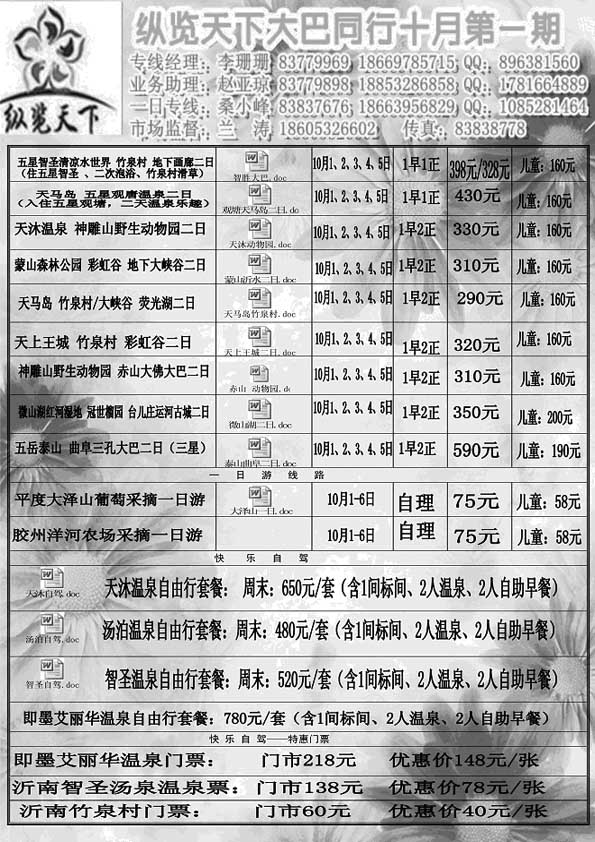 纵览天下
纵览天下大巴同行十月第一期
专线经理：李珊珊 83779969 18669785715 QQ：896381560
业务助理：赵亚琼 83779898 18853286858 QQ：1781664889
一日专线：桑小峰 83837676 18663956829 QQ：1085281464
市场监督：兰 涛 18605326602 传真：83838778
五星智圣清凉水世界 竹泉村 地下画廊二日
（住五星智圣、二次泡浴、竹泉村滑草） 智胜大巴.doc 10月1、2、3、4、5日 1早1正 398元/328元 儿童：160元
天马岛 五星观唐温泉二日
（入住五星观塘，二天温泉乐趣） 观塘天马岛二日.do 10月1、2、3、4、5日 1早2正 430元 儿童：160元
天沐温泉 神雕山野生动物园二日 天沐动物园.doc 10月1、2、3、4、5日 1早2正 330元 儿童：160元
蒙山森林公园 彩虹谷 地下大峡谷二日 蒙山沂水二日.doc 10月1、2、3、4、5日 1早2正 310元 儿童：160元
天马岛 竹泉村/大峡谷 荧光湖二日 天马岛竹泉村.doc 10月1、2、3、4、5日 1早2正 290元 儿童：160元
天上王城 竹泉村 彩虹谷二日 天上王城二日.doc 10月1、2、3、4、5日 1早2正 320元 儿童：160元
神雕山野生动物园 赤山大佛大巴二日 赤山 动物园.dc 10月1、2、3、4、5日 1早2正 310元 儿童：160元
微山湖红河湿地 冠世榴园 台儿庄运河古城二日 微山湖二日.doc 10月1、2、3、4、5日 1早2正 350元 儿童：200元
五岳泰山 曲阜三孔大巴二日（三星） 泰山曲阜二日.doc 10月1、2、3、4、5日 1早2正 590元 儿童：190元
一 日 游 线 路
平度大泽山葡萄采摘一日游 大泽山一日.doc 10月1-6日 自理 75元 儿童：58元
胶州洋河农场采摘一日游 10月1-6日 自理 75元 儿童：58元
快 乐 自 驾
天沐自驾.doc 天沐温泉自由行套餐： 周末：650元/套（含1间标间、2人温泉、2人自助早餐）
汤泊自驾.doc 汤泊温泉自由行套餐：周末：480元/套（含1间标间、2人温泉、2人自助早餐）
智圣自驾.doc 智圣温泉自由行套餐：周末：520元/套（含1间标间、2人温泉、2人自助早餐）
即墨艾丽华温泉自由行套餐：780元/套（含1间标间、2人温泉、2人自助早餐）
快 乐 自 驾——特惠门票
即墨艾丽华温泉门票： 门市218元 优惠价148元/张
沂南智圣汤泉温泉票： 门市138元 优惠价78元/张
沂南竹泉村门票： 门市60元 优惠价40元/张